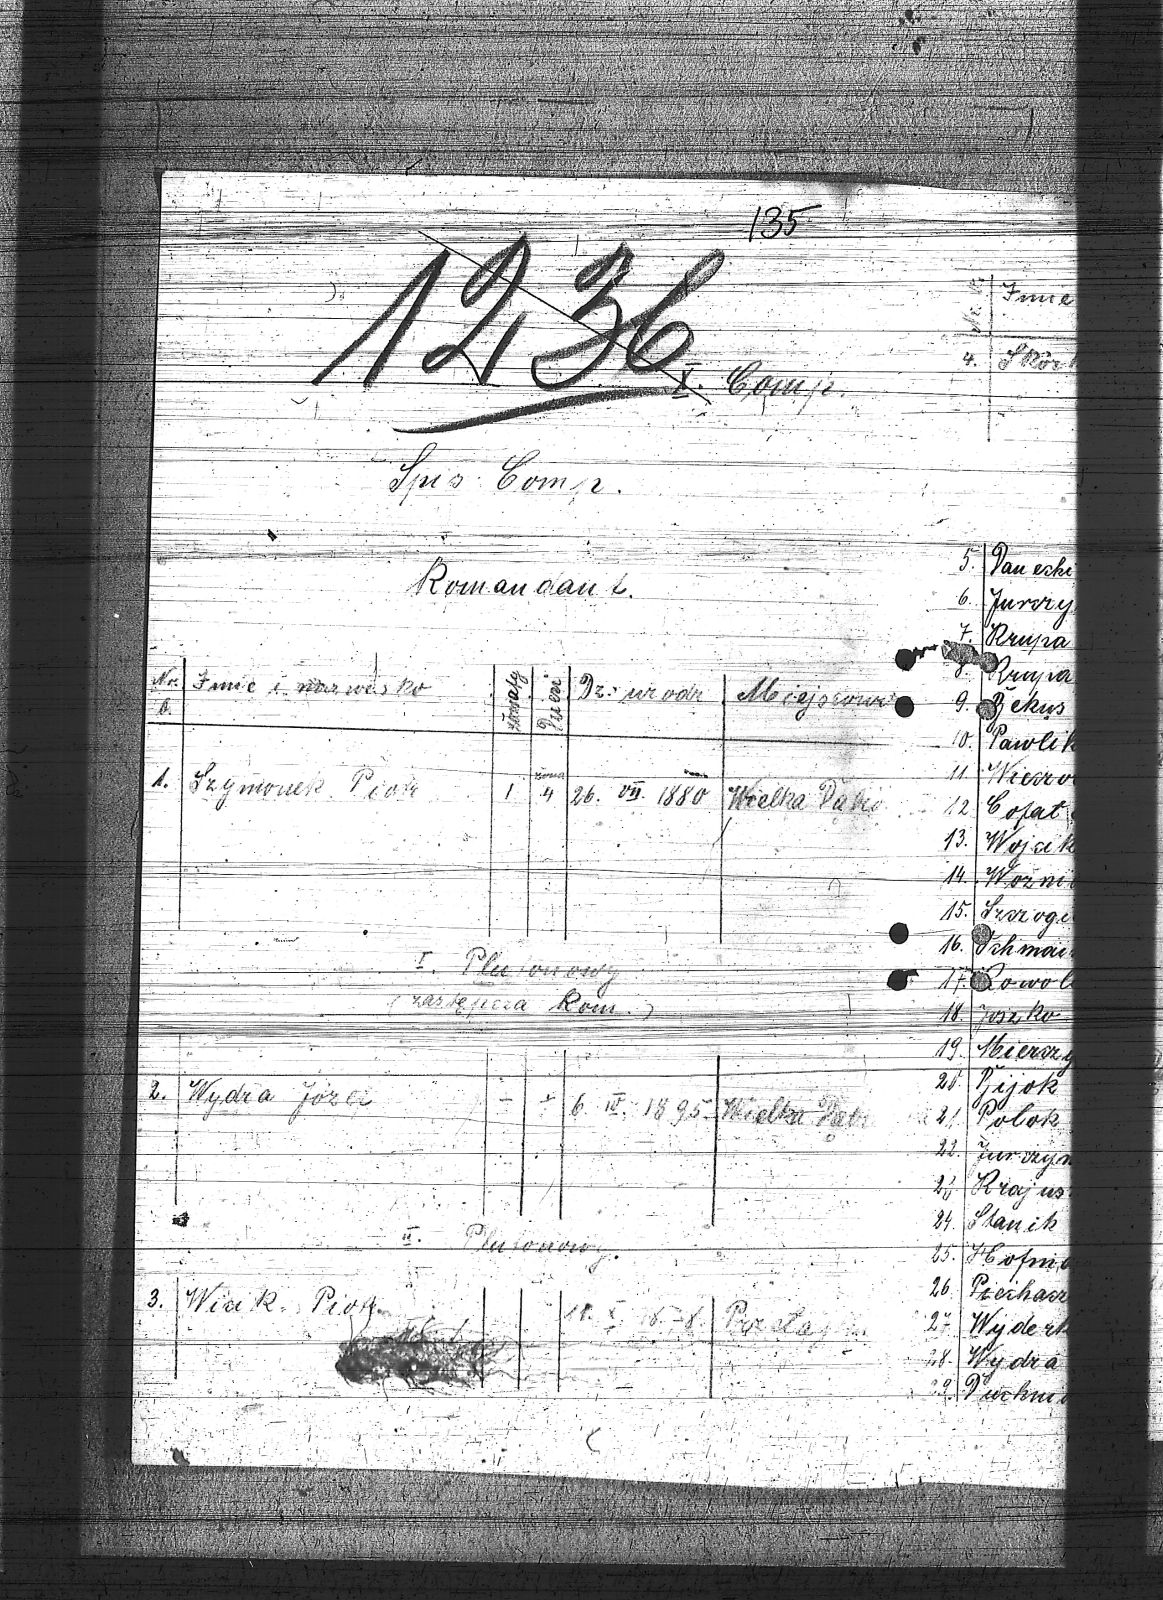 135
1236
I. Comp.
Spis Comp.
Komandant.
Nr. Imie i nazwisko żonaty Dzieci Dz. urodz Miejscow
1. Szymonek Piotr 1 żona 4 26. VII. 1880 Wielka Dąbr
I. Plutonowy
(zastępcza Kom.)
2. Wydra Józef - - 6. IV. 1895. Wielka Dąbr
II. Plutonowy.
3. Piotr
Nr. Imie
4. Skór
5.
6. Jurczy
7. Krupa
8. Krupa
9.
10. Pawlik
11. Wieczo
12 Cofat
13. Wojcik
14. Wozni
15.
16.
17. Kowol
18. Joszko
19. Mierzy
20.
21. Polok
22. Jurczyn
23 Krajus
24. Stanik
25. Hofma
26.
27. Wyder
28. Wydra
29.